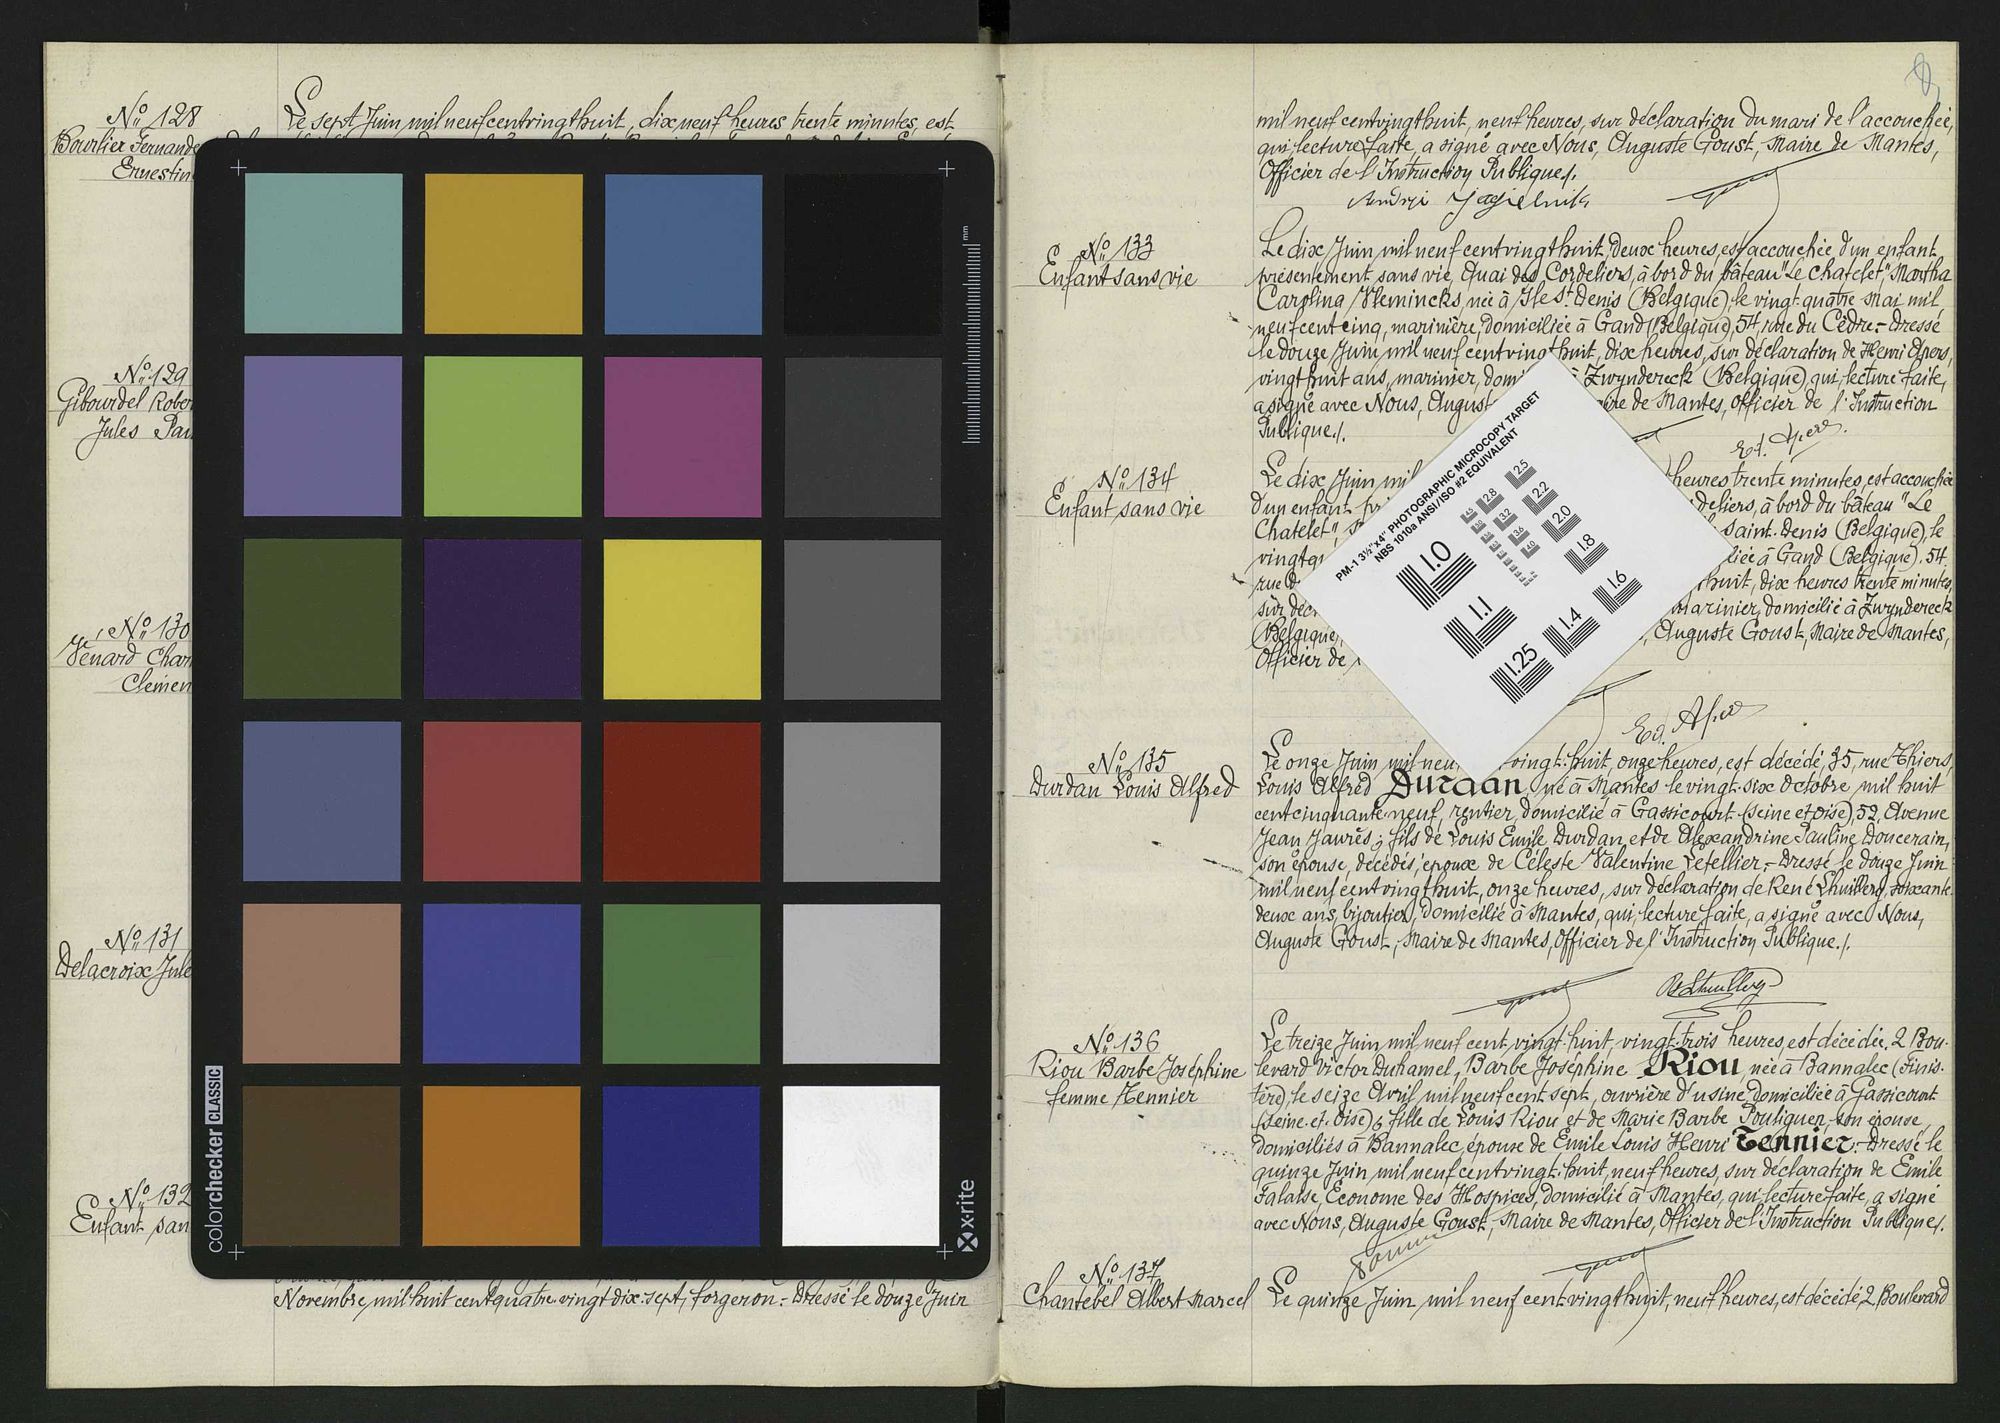 N° 128
Bourlier Fernande
Ernestin
Le sept Juin mil neuf cent vingt huit, dix neuf heures trente minutes, est
N° 129
Gibourdel Rober
Jules Pau
N° 130
Venard Char
Clémen
N° 131
Delacroix Jule
N° 132
Enfant san
Novembre mil huit cent quatre-vingt dix-sept, forgeron.- Dressé le douze Juin
colorchecker CLASSIC
x-rite
mm
mil neuf cent vingt huit, neuf heures, sur déclaration du mari de l'accouchée,
qui, lecture faite, a signé avec Nous, Auguste Goust, Maire de Mantes,
Officier de l'Instruction Publique./.
N° 133
Enfant sans vie
Le dix Juin mil neuf cent vingt huit, deux heures, est accouchée d'un enfant
présentement sans vie, Quai des Cordeliers, à bord du bâteau "Le Chatelet", Martha
Carolina Vlemincks née à Ile St Denis (Belgique), le vingt-quatre Mai mil
neuf cent cinq, marinière, domiciliée à Gand (Belgique), 54, rue du Cèdre.- Dressé
le douze Juin mil neuf cent vingt huit, dix heures, sur déclaration de Henri Apers,
vingt huit ans, marinier, domi à Zwyndereck (Belgique) qui, lecture faite,
a signé avec Nous, August ire de Mantes, Officier de l'Instruction
Publique./.
N° 134
Enfant sans vie
Le dix Juin mil heures trente minutes, est accouchée
d'un enfant pr deliers, à bord du bâteau "Le
Chatelet", Saint-Denis (Belgique), le
vingt qu liée à Gand (Belgique), 54
rue d huit, dix heures trente minutes,
sur décl marinier, domicilié à Zwyndereck
(Belgique) , Auguste Goust, Maire de Mantes,
Officier de
PM-1 3½"x4" PHOTOGRAPHIC MICROCOPY TARGET
NBS 1010a ANSI/ISO #2 EQUIVALENT
1.0
1.1
1.25
1.4
1.6
1.8
2.0
2.2
2.5
2.8
3.2
3.6
4.0
N° 135
Durdan Louis Alfred
Le onze Juin mil neu vingt-huit, onze heures, est décédé, 35, rue Thiers,
Louis Alfred Durdan, né à Mantes le vingt-six Octobre mil huit
cent cinquante-neuf, rentier, domicilié à Gassicourt (Seine et Oise), 52, Avenue
Jean Jaurès; fils de Louis Emile Durdan et de Alexandrine Pauline Doucerain,
son épouse, décédés; époux de Céleste Valentine Letellier.- Dressé le douze Juin
mil neuf cent vingt huit, onze heures, sur déclaration de René Lhuillery, soixante-
deux ans, bijoutier, domicilié à Mantes, qui, lecture faite, a signé avec Nous,
Auguste Goust, Maire de Mantes, Officier de l'Instruction Publique./.
N° 136
Riou Barbe Joséphine
femme Tennier
Le treize Juin mil neuf cent vingt-huit, vingt-trois heures, est décédée, 2 Bou-
levard Victor Duhamel, Barbe Joséphine Riou, née à Bannalec (Finis-
tère), le seize Avril mil neuf cent sept, ouvrière d'usine, domiciliée à Gassicourt
(Seine-et-Oise); fille de Louis Riou et de Marie Barbe Pouliquen, son épouse,
domiciliés à Bannalec, épouse de Emile Louis Henri Tennier.- Dressé le
quinze Juin mil neuf cent vingt-huit, neuf heures, sur déclaration de Emile
Falaise, Econome des Hospices, domicilié à Mantes, qui, lecture faite, a signé
avec Nous, Auguste Goust, Maire de Mantes, Officier de l'Instruction Publique./.
N° 137
Chantebel Albert Marcel
Le quinze Juin mil neuf cent vingt huit, neuf heures, est décédé, 2 Boulevard